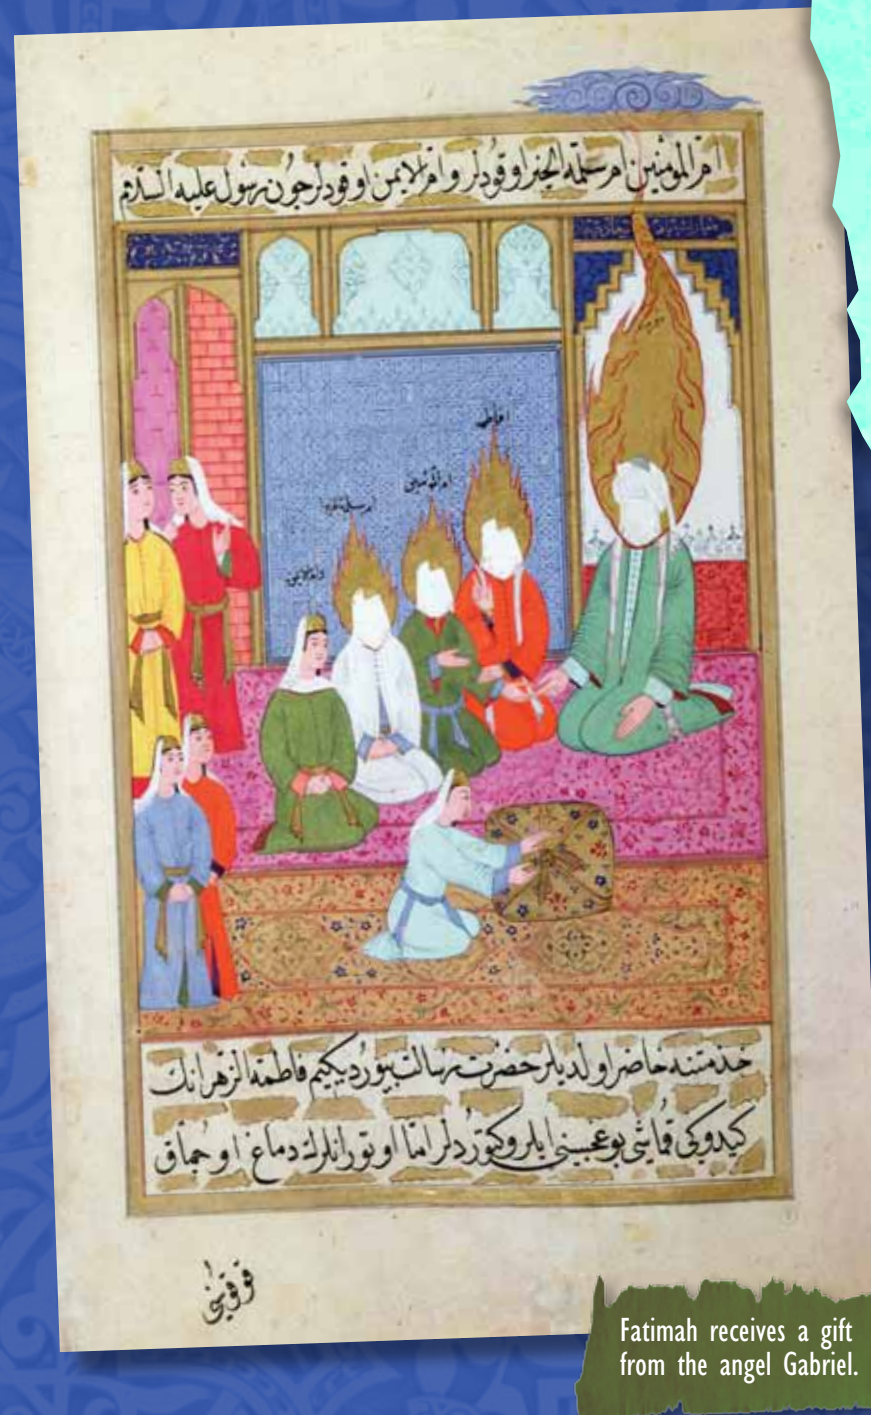 ام المؤمنين ام سلمه اوقودلر وام لايمن اوقودلر جون رسول عليه السلام
ام المؤمنين
خذمتنه حاضر اولديلر حضرت رسالت بيورديكيم فاطمة الزهرانك
كيدوكى قماشى بوغجسنى ايلرو كتوردلر اما اوتورانلرك دماغ اوجماق
Fatimah receives a gift
from the angel Gabriel.